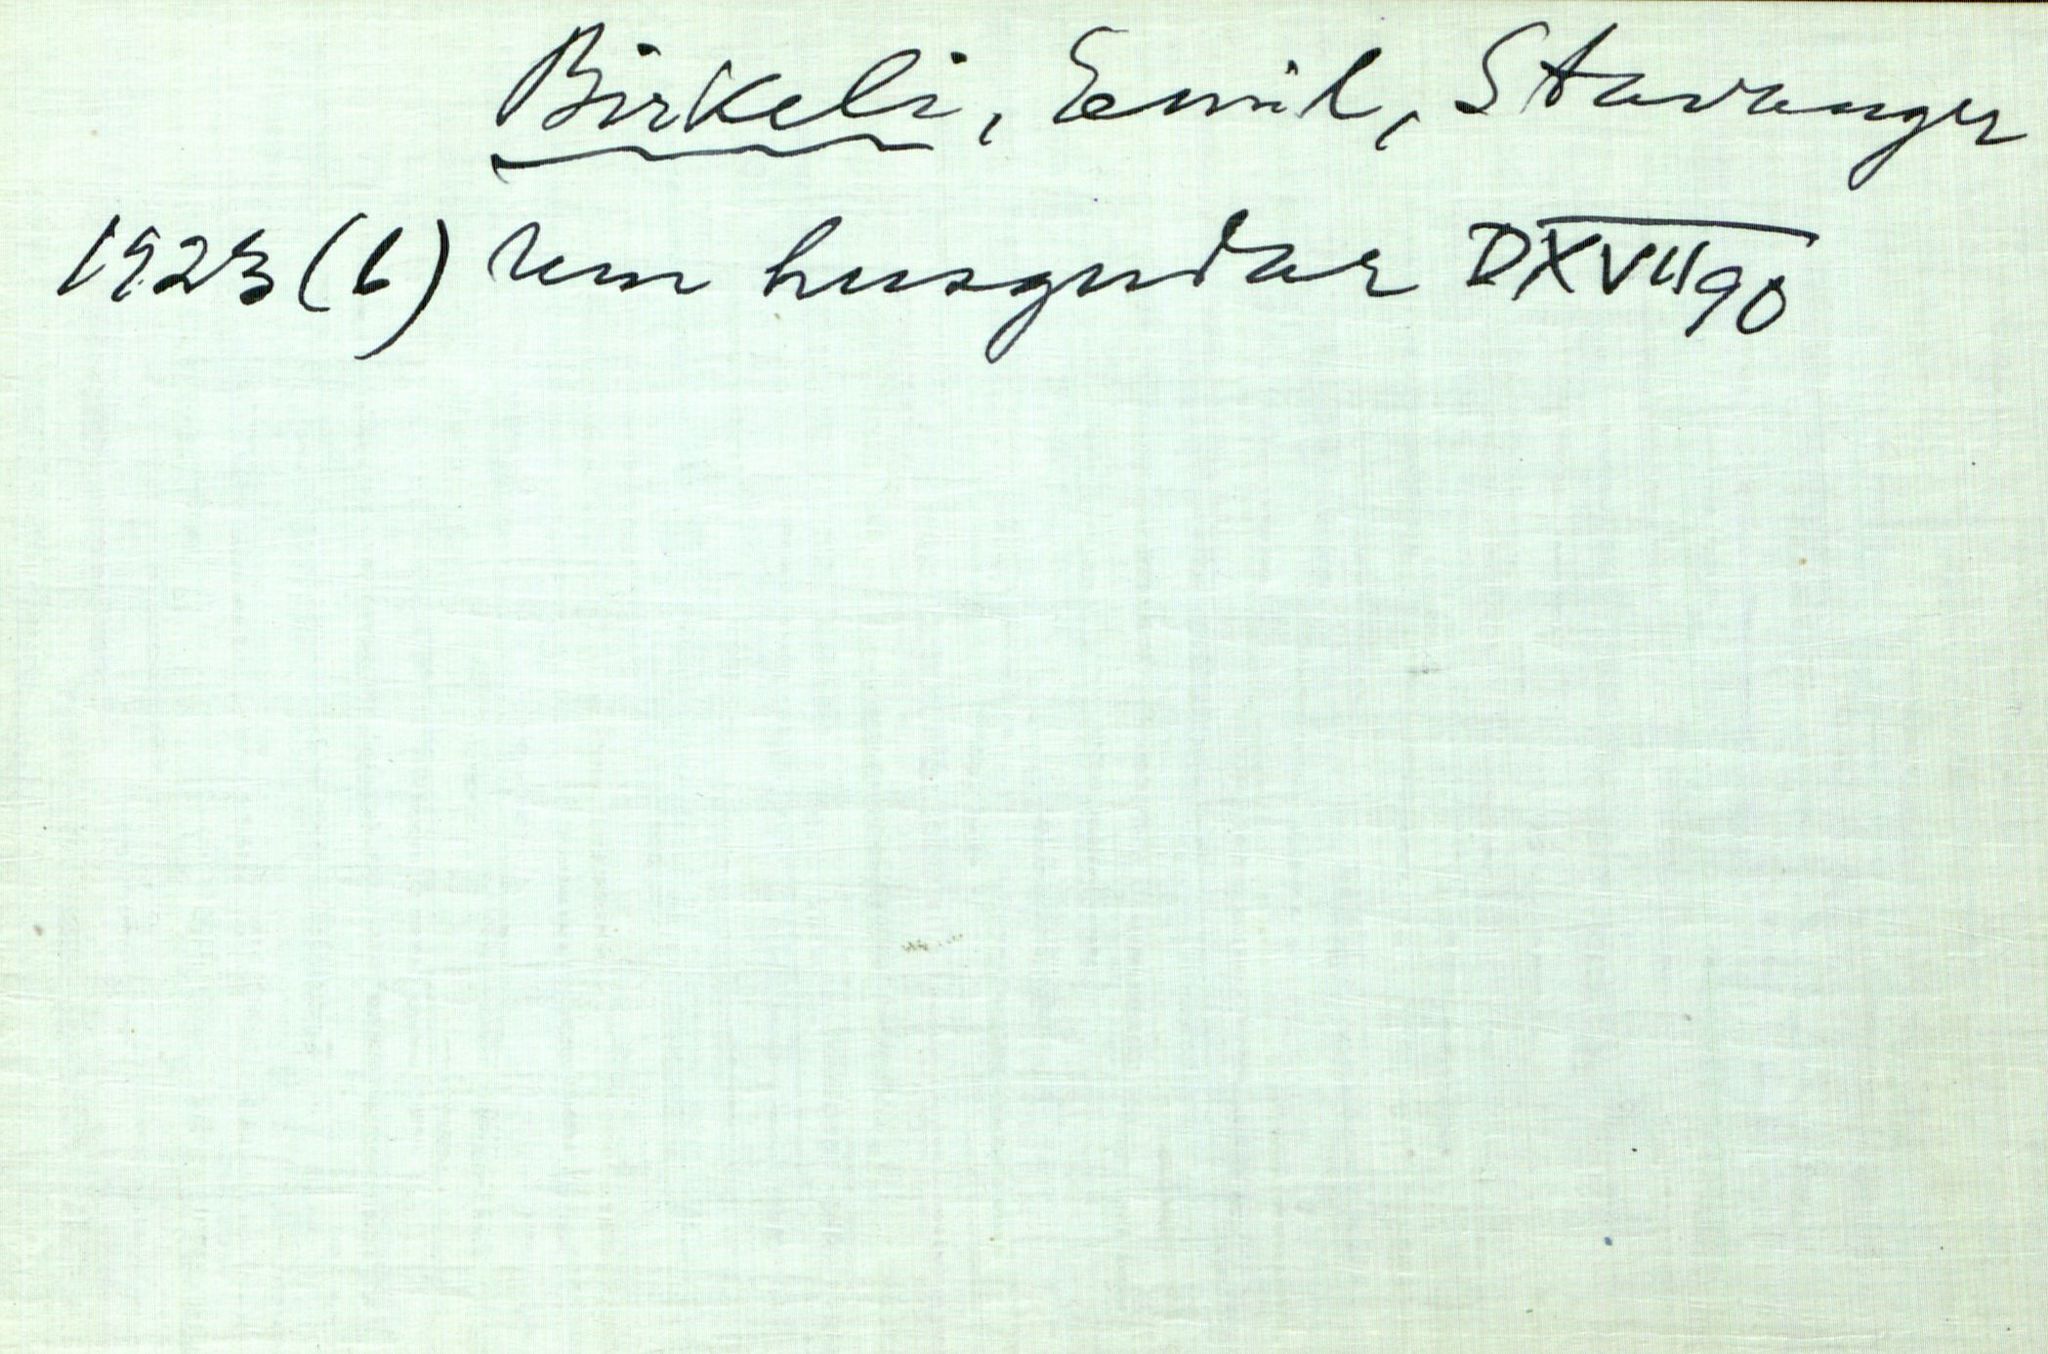 Birkeli, Emil, Stavanger
1923 (b) um husgudar DXVII 90